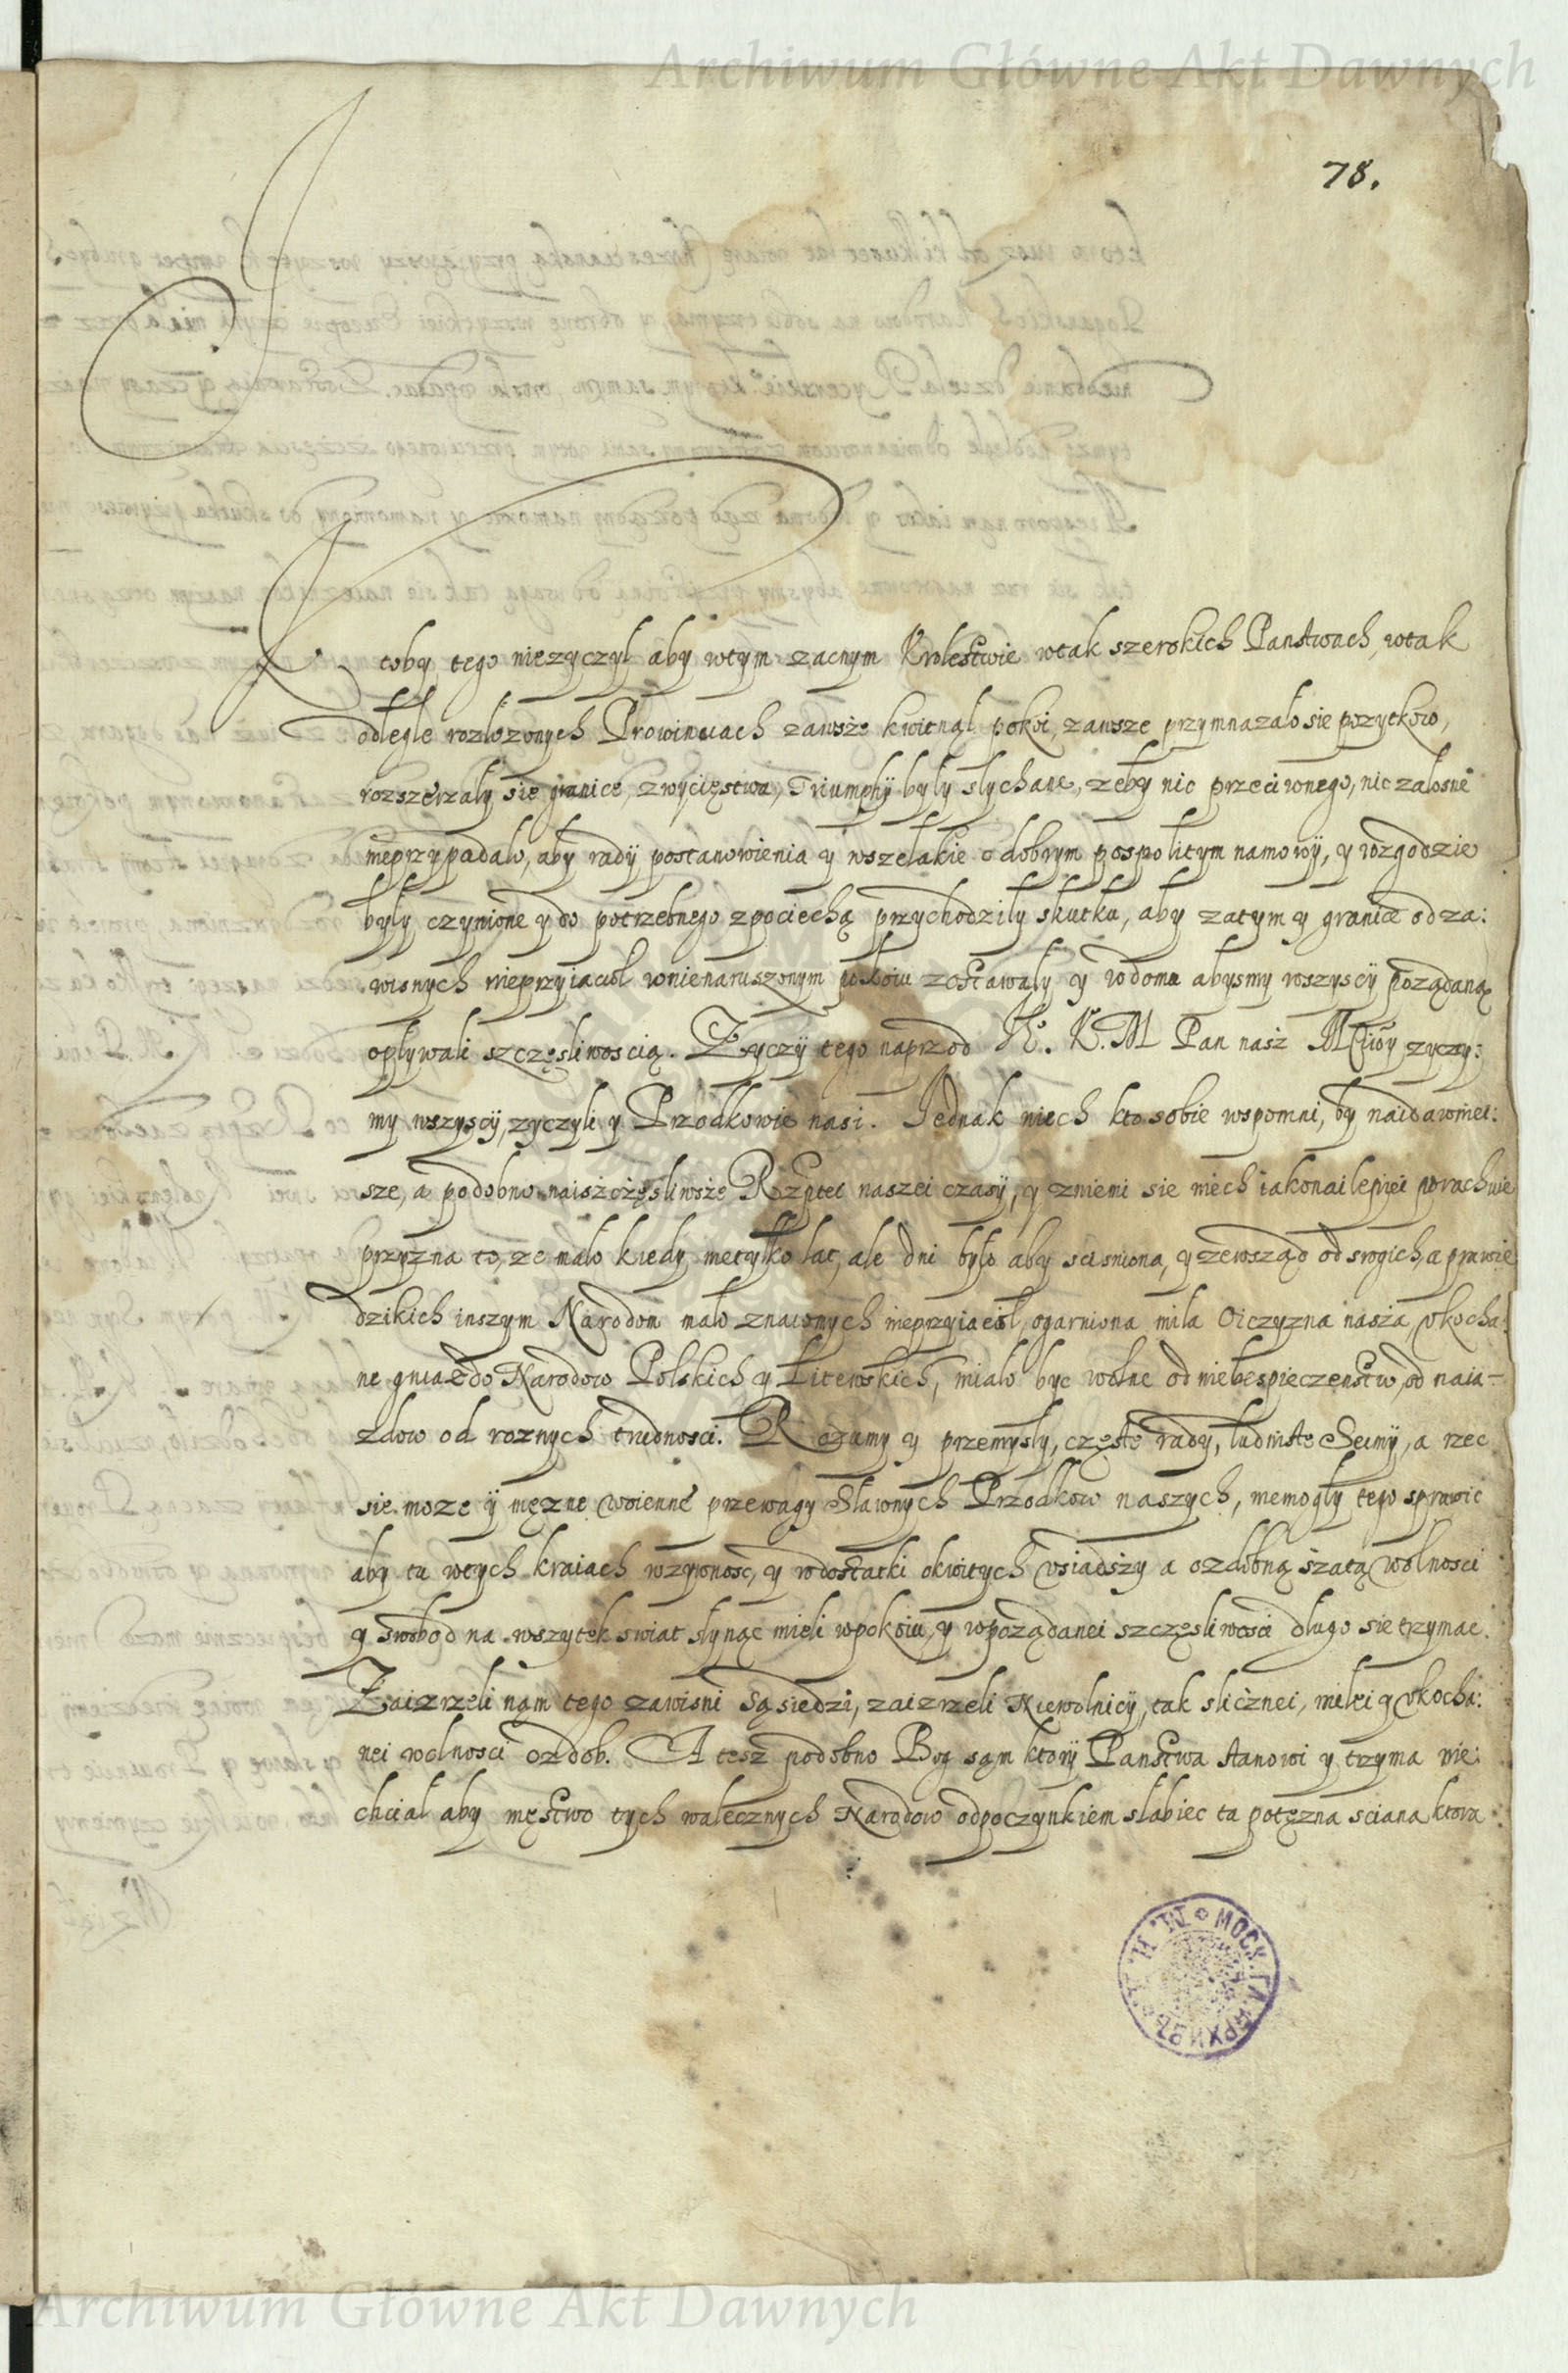 Archiwum Główne Akt Dawnych
78.
Ktoby tego nieżyczył aby wtym zacnym Krolestwie wtak szerokich Panstwach, wtak
odlegle rozlozonych Prowincyach zawsze kwitnął pokoi, zawsze przymnazalo sie pozytkow,
rozszerzały się granice, zwycięstwa, Triumphÿ były slychane, zeby nic przeciwnego, nic zalosne
nieprzypadalo, aby radÿ postanowienia y wszelakie o dobrym pospolitym namowÿ, y wzgodzie
były czynione y do potrzebnego zpociechą przychodziły skutku, aby zatym y granice od za:
wisnych nieprzyiaciol wnienaruszonym pokoiu zostawały y wdoma abysmy wszyscÿ pożądaną
opływali szczęsliwoscią. Zyczÿ tego naprzod JE. K. M Pan nasz Mciwy zyczy:
my wszyscÿ, zyczyli y Przodkowie nasi. Jednak niech kto sobie wspomni, by naidawniei:
sze, a podobno naiszczęsliwsze Rzptei naszei czasÿ, y zniemi sie niech iakonailepiei porachuie
przyzna to, ze malo kiedy nietylko lat, ale dni bylo aby scisniona, y zewsząd od srogich, a prawie
dzikich inszym Narodom malo znaiomych nieprzyiaciol, ogarniona mila Oiczyzna nasza, vkocha:
ne gniazdo Narodow Polskich y Litewskich, mialo byc wolne od niebespieczenstw, od naia-
zdow od roznych trudnosci. Rozumy y przemysly, częste rady, ludniste Seimÿ, a rzec
sie moze ÿ mężne woienne przewagy Sławnych Przodkow naszych, niemogły tego sprawic
aby tu wtych kraiach wzywnosc, y wdostatki okwitych vsiadszy a ozdobną szatą wolnosci
y swobod na wszytek swiat slynąc mieli wpokoiu, y wpożądanei szczęsliwosci dlugo sie trzymac.
Zaizrzeli nąm tego zawisni Sąsiedzi, zaizrzeli Niewolnicÿ, tak slicznei, milei y vkocha:
nei wolnosci ozdob. A tesz podobno Bog sąm ktorÿ Panstwa stanowi y trzyma nie:
chcial aby męstwo tych walecznych Narodow odpoczynkiem slabiec ta potęzna sciana ktora
Archiwum Główne Akt Dawnych